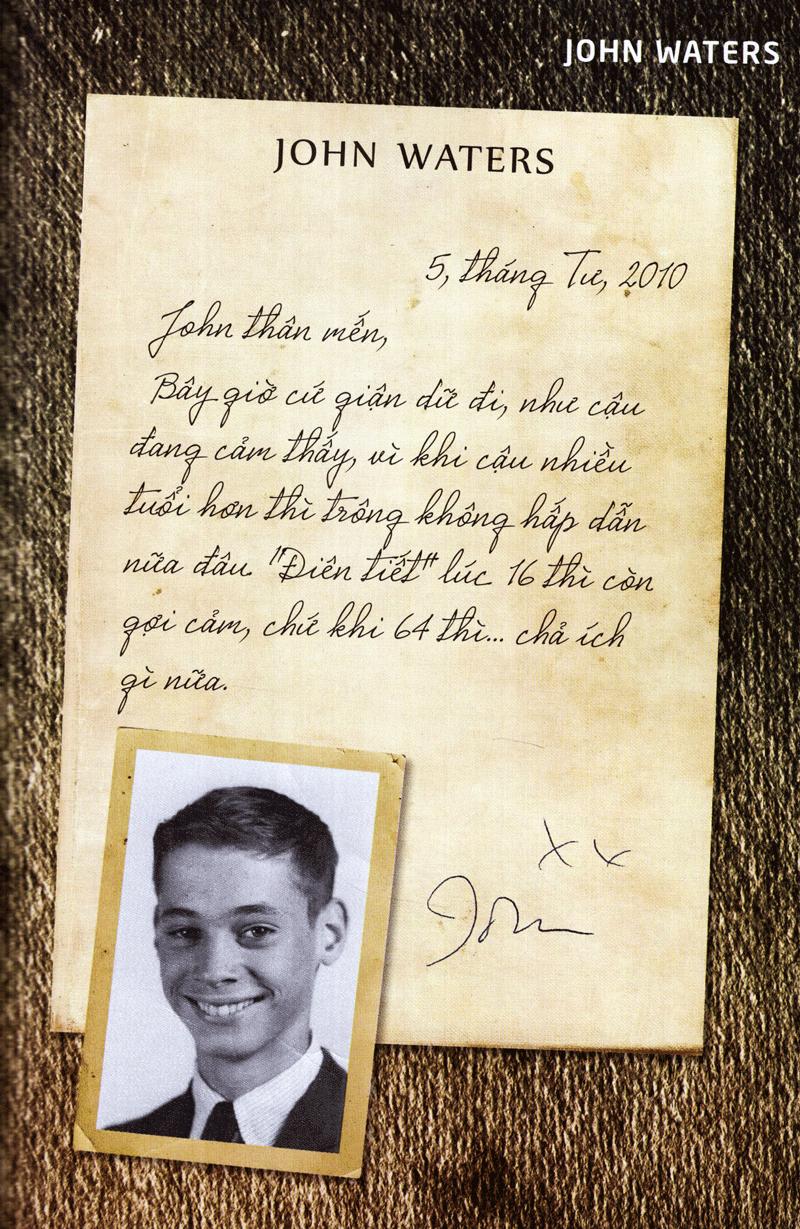 JOHN WATERS
JOHN WATERS
5, tháng Tư, 2010
John thân mến,
Bây giờ cứ giận dữ đi, như cậu
đang cảm thấy, vì khi cậu nhiều
tuổi hơn thì trông không hấp dẫn
nữa đâu. "Điên tiết" lúc 16 thì còn
gợi cảm, chứ khi 64 thì... chả ích
gì nữa.
xx
John